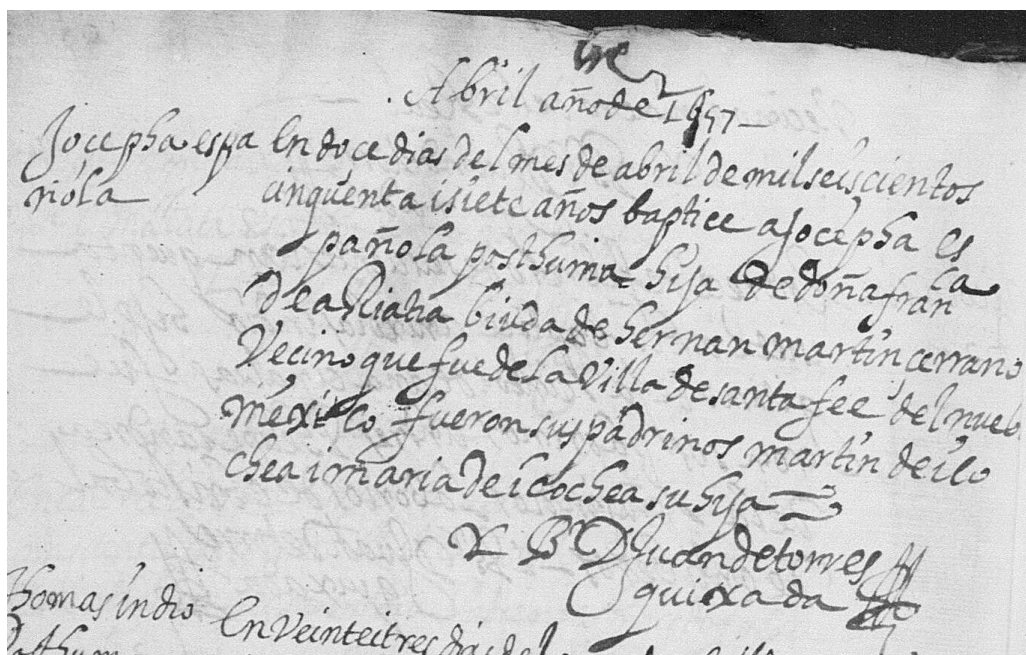 Abril año de 1657
Jocepha espa
ñola
En doce dias del mes de abril de mil seiscientos
cinquenta i siete años baptice a Jocepha es
pañola posthuma hija de doña fran^ca
de biuda de hernan martin cerrano
Vecino que fue de la Villa de santa fee del nueb
mexico fueron sus padrinos martin de ico
chea i maria de icochea su hija
B^r D Juan de torres
quixada
thomas indio
En Veinte i tres dias del